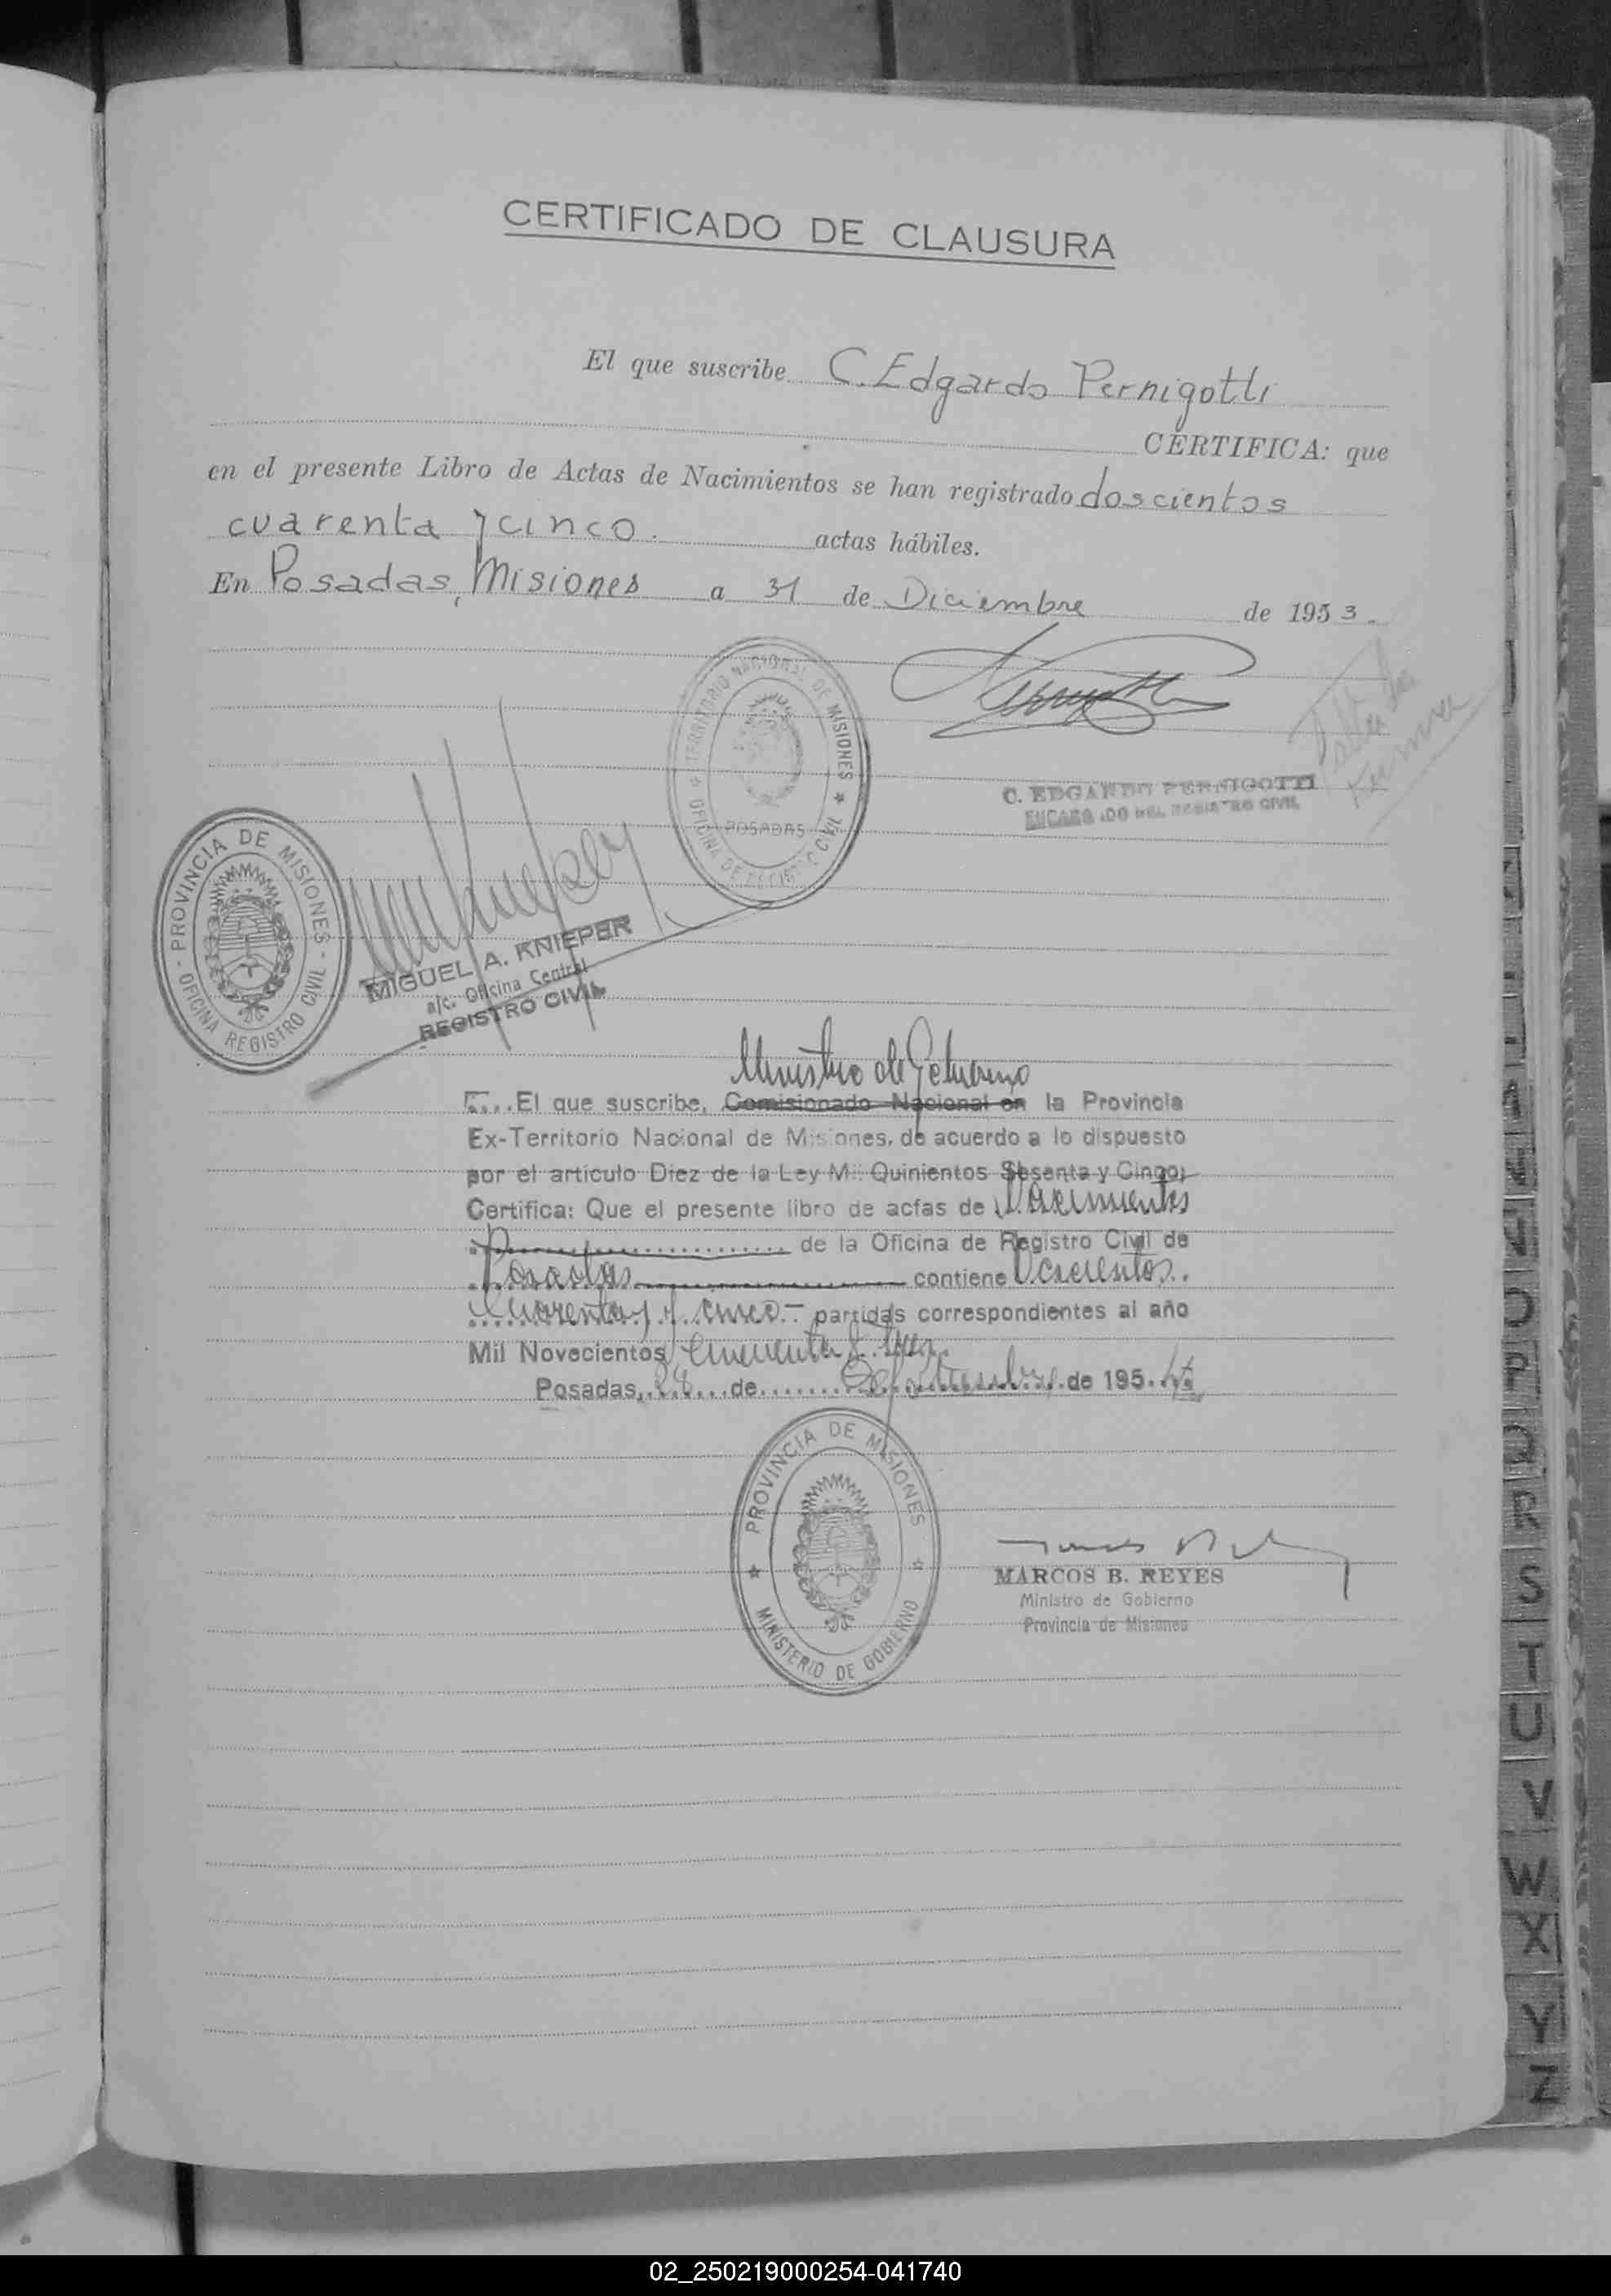 CERTIFICADO DE CLAUSURA
El que suscribe C. Edgardo Pernigotti
CERTIFICA: que
en el presente Libro de Actas de Nacimientos se han registrado doscientos
cuarenta y cinco. actas hábiles.
En Posadas, Misiones a 31 de Diciembre de 1953.
TERRITORIO NACIONAL DE MISIONES
POSADAS
OFICINA DE REGISTRO CIVIL
Falta la
firma
C. EDGARDO PERNIGOTTI
ENCARGADO DEL REGISTRO CIVIL
PROVINCIA DE MISIONES
OFICINA REGISTRO CIVIL
MIGUEL A. KNIEPER
a/c. Oficina Central
REGISTRO CIVIL
Ministro de Gobierno
El que suscribe, Comisionado Nacional en la Provincia
Ex-Territorio Nacional de Misiones, de acuerdo a lo dispuesto
por el artículo Diez de la Ley Mil Quinientos Sesenta y Cinco;
Certifica: Que el presente libro de actas de Nacimientos
de la Oficina de Registro Civil de
Posadas contiene Doscientos
Cuarenta y cinco.- partidas correspondientes al año
Mil Novecientos Cincuenta y tres.
Posadas, 28 de de 195
PROVINCIA DE MISIONES
MINISTERIO DE GOBIERNO
MARCOS B. REYES
Ministro de Gobierno
Provincia de Misiones
O
P
Q
R
S
T
U
V
W
X
Y
Z
02_250219000254-041740